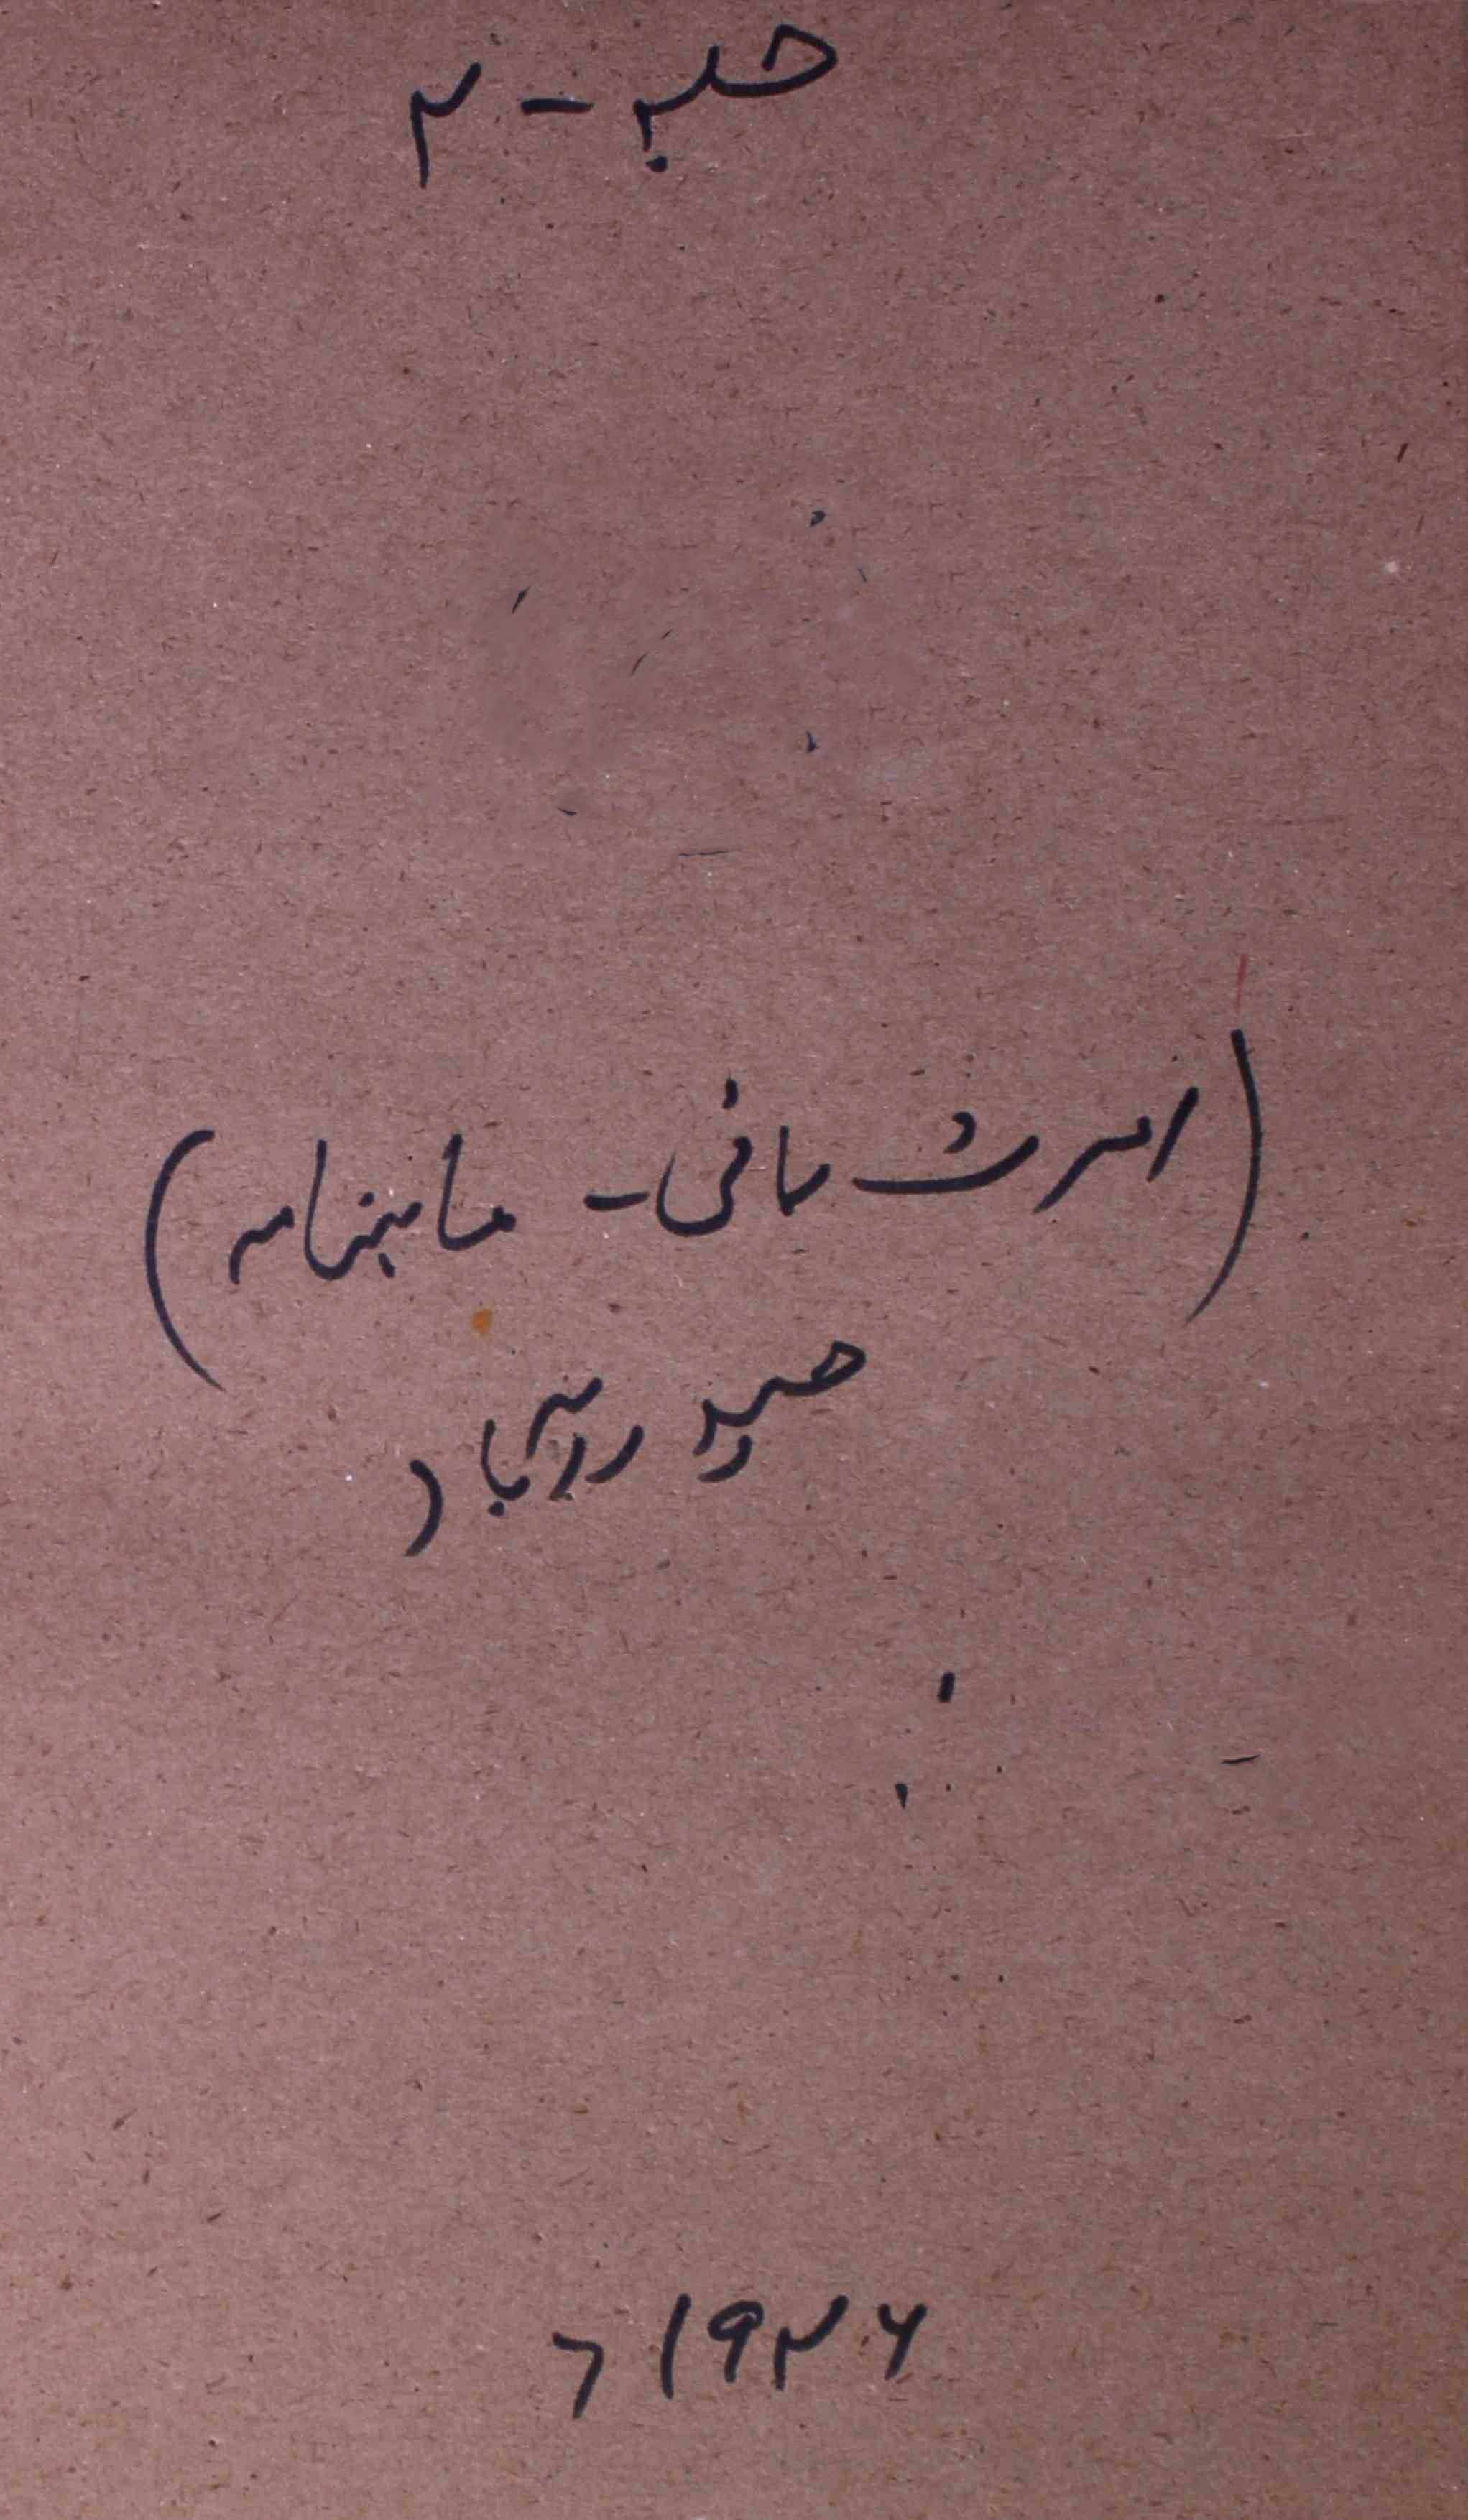 جلد - ۲
(امرت بانی - ماہنامہ)
حیدرآباد
۱۹۲۶ء